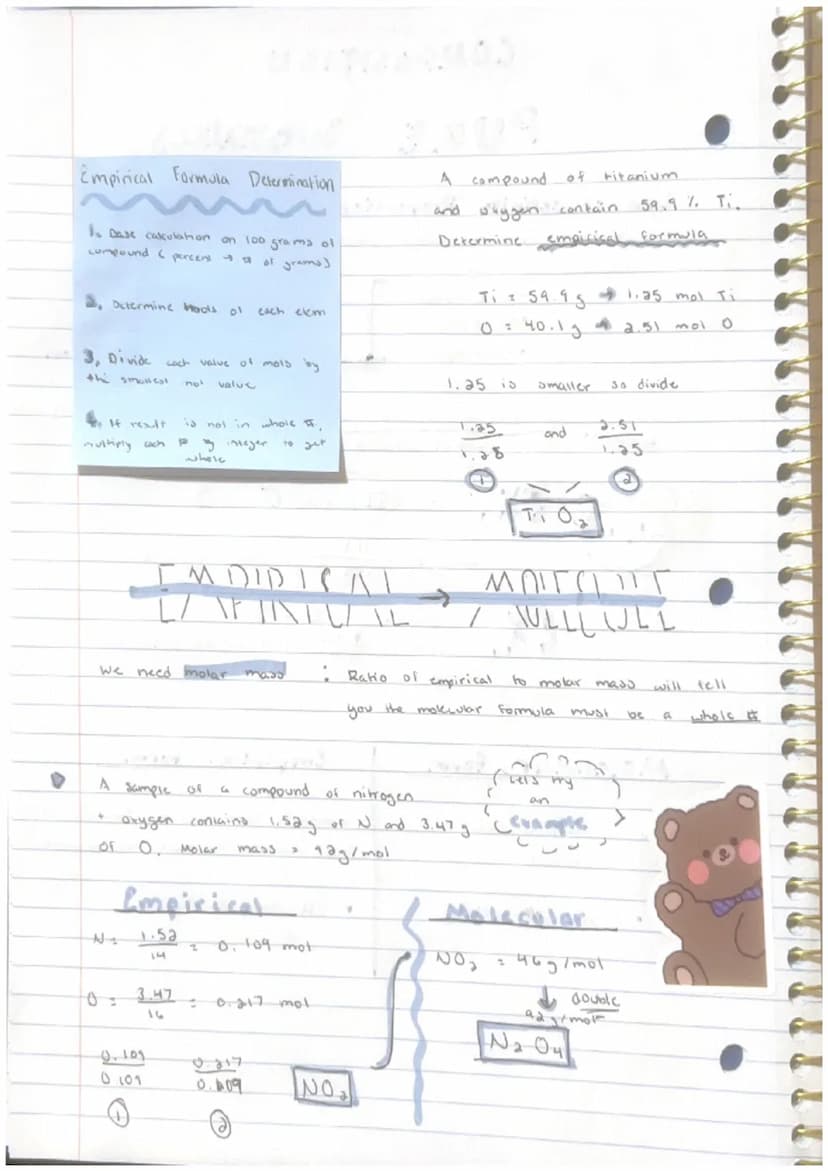 Empirical Formula Determination
1. Base calculation on 100 grams of
compound ( percent → # of grams)
2. Determine mols of each elem
3. Divide each value of mols by
the smallest mol value
4. If result is not in whole #,
multiply each # by integer to get
whole
A compound of titanium
and oxygen contain 59.9 % Ti.
Determine empirical formula
Ti = 59.9g → 1.25 mol Ti
O = 40.1g → 2.51 mol O
1.25 is smaller so divide
1.25 and 2.51
1.25 1.25
1 2
TiO2
EMPIRICAL → MOLECULE
We need molar mass : Ratio of empirical to molar mass will tell
you the molecular formula must be a whole #
Lets try
an
example
A sample of a compound of nitrogen
+ oxygen contains 1.52g of N and 3.47g
of O. Molar mass = 92g/mol
Empirical
N = 1.52/14 = 0.109 mol
O = 3.47/16 = 0.217 mol
0.109 0.217
0.109 0.109
1 2
NO2
Molecular
NO2 = 46g/mol
↓ double
92g/mol
N2O4